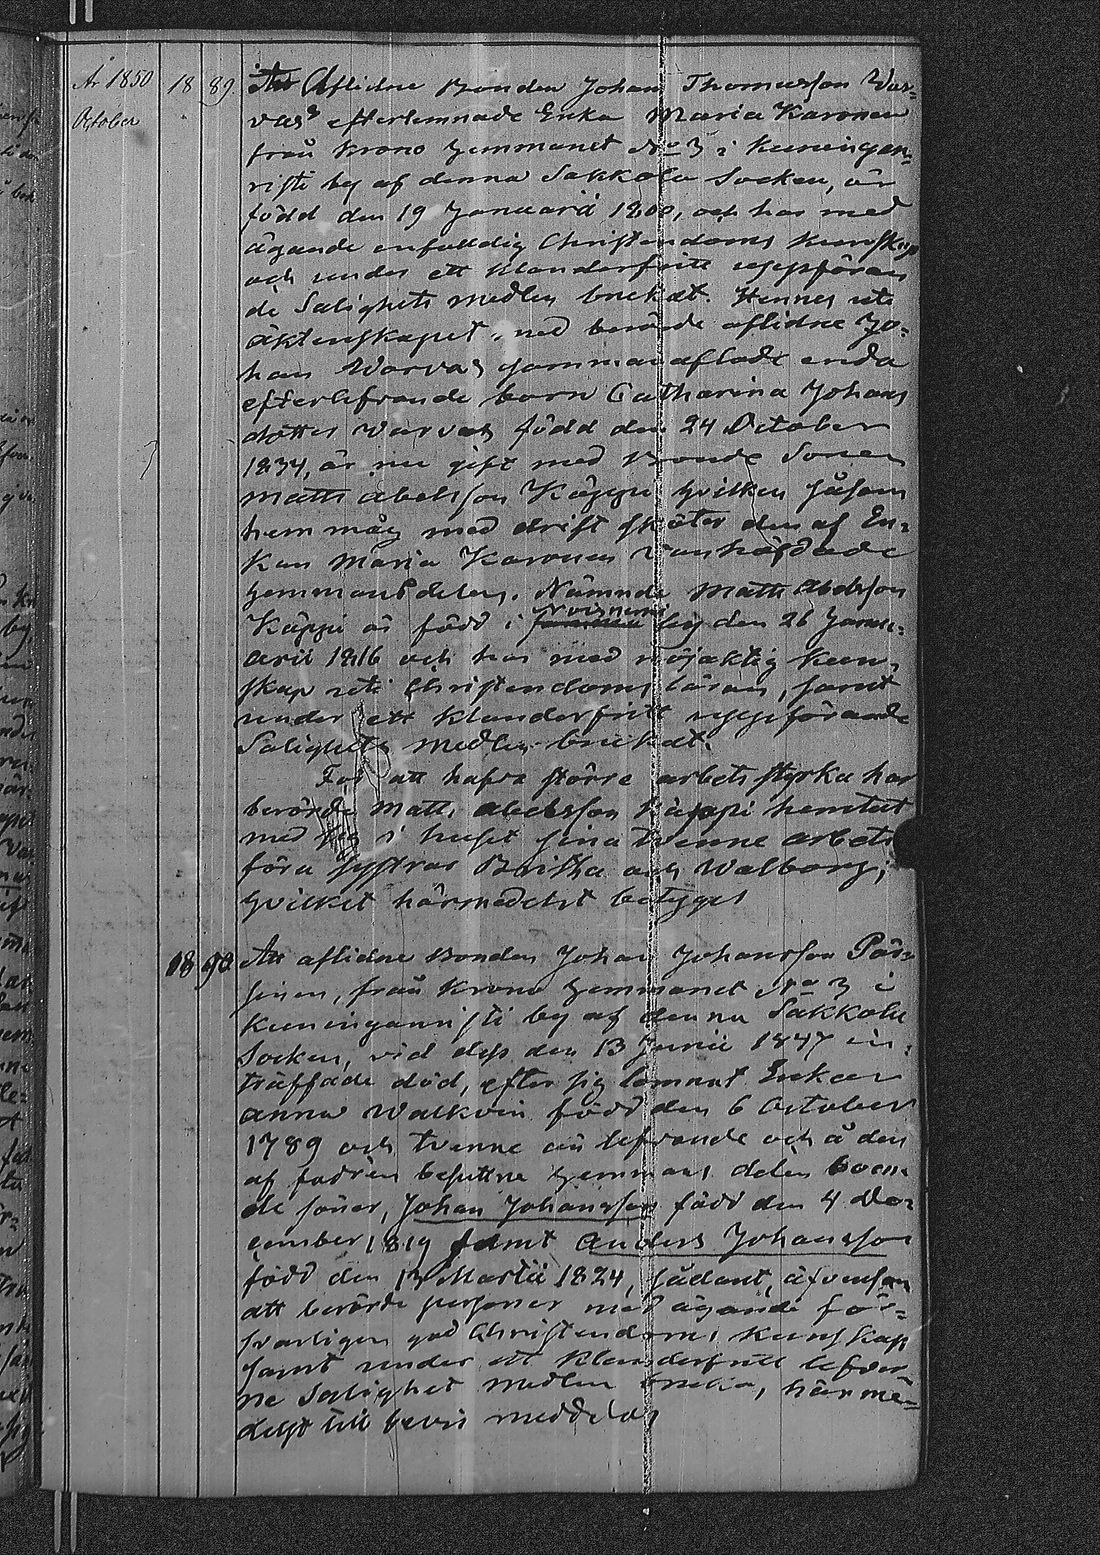 År 1850 18 89. Att Aflidne Bonden Johan Thomasson War=
October vas' efterlemnade Enka Maria Karonen
från Krono Hemmanet No 3 i Kuningan=
risti by af denna Sakkola Socken, är
född den 19 Januarii 1800, och har med
ägande enfaldig Christendoms Kunskap
och under ett klanderfritt uppföran
de Salighets medlen brukat. Hennes uti
äktenskapet med berörde aflidne Jo=
han Warvas sammanaflade enda
efterlefvande barn Catharina Johans
dotter Warvas född den 24 October
1834, är nu gift med Bonde Sonen
Matts Abelsson Käppi hvilken såsom
hemmåg med drift sköter den af En=
kan Maria Karonen vanhäfdade
Hemmansdelen. Nämnde Matts Abelsson
Käppi är född i Noisniemi by den 26 Janu=
arii 1816 och har med nöjaktig kun=
skap uti Christendoms läran, samt
under ett klanderfritt uppförande
Salighets medlen brukat.
För att hafva större arbets styrka har
berörde Matts Abelsson Käppi hemtat
med sig i huset sina tvenne arbets
föra systrar Britha och Walborg,
hvilket härmedelst betygas
18 90. Att aflidne Bonden Johan Johansson Pär=
sinen, från Krono Hemmanet No 3 i
Kuninganristi by af denna Sakkola
Socken, vid dess den 13 Junii 1847 in=
träffade död, efter sig lemnat Enkan
Anna Walkoin född den 6 October
1789 och tvenne än lefvande och å den
af fadren besuttne Hemmans delen boen=
de söner, Johan Johansson född den 4 De=
cember 1819 samt Anders Johansson
född den 13 Martii 1824, sådant, äfvensom
att berörde personer med ägande för=
svarligen god Christendoms Kunskap
samt under ett klanderfritt lefver=
ne Salighets medlen bruka, härme=
delst till bevis meddelas